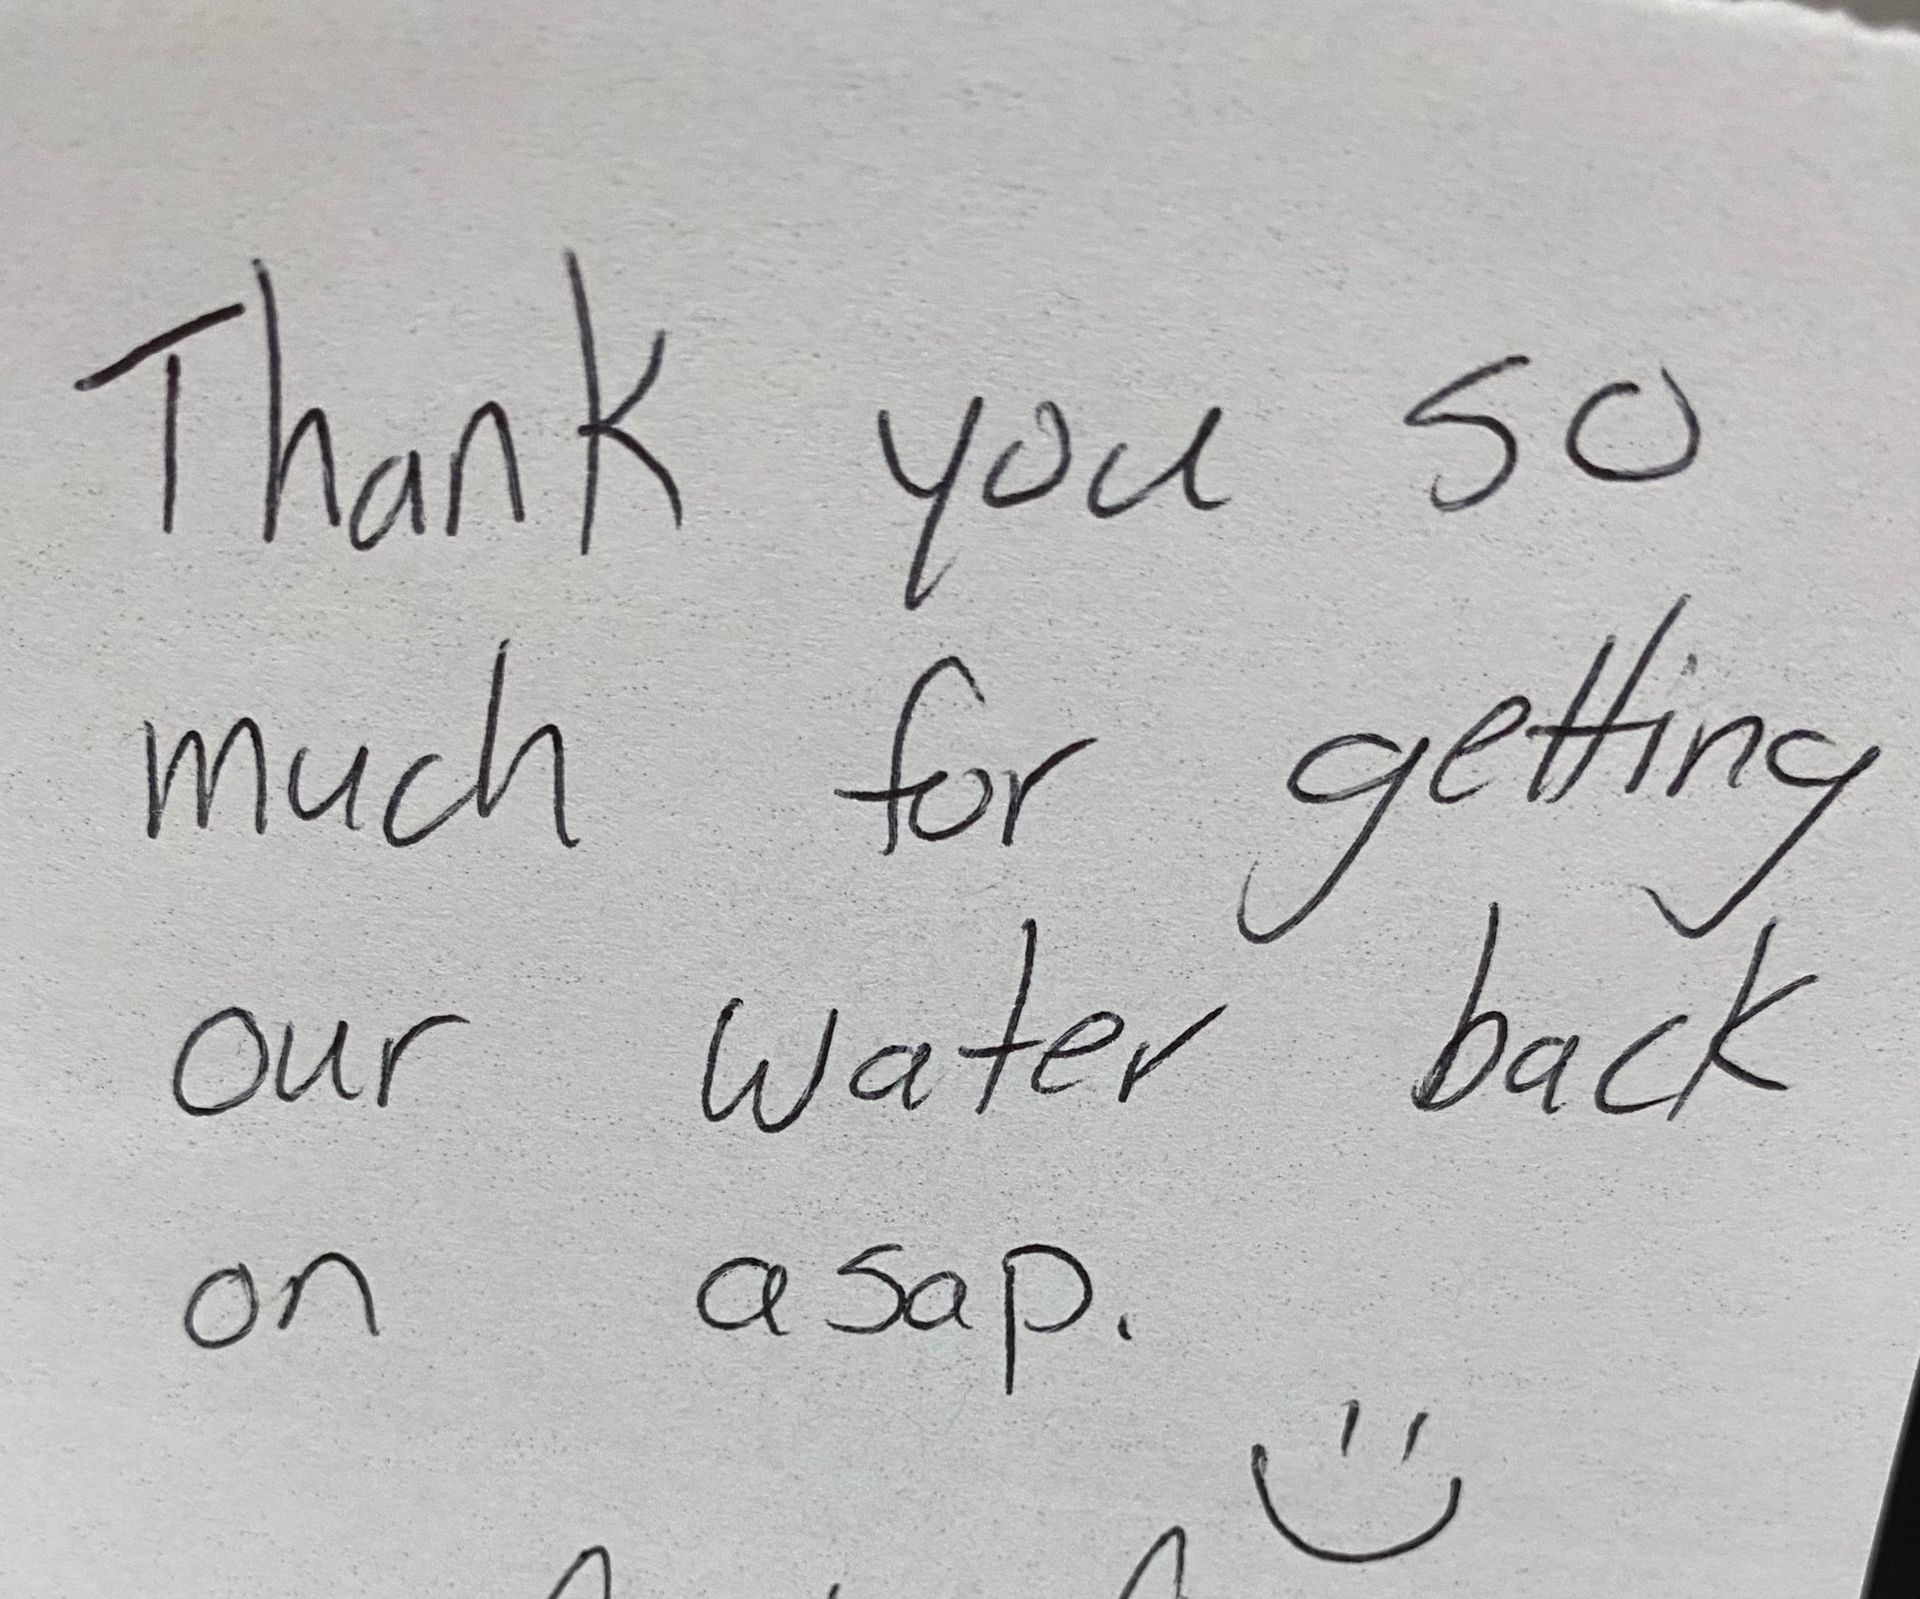 Thank you so
much for getting
our water back
on asap.